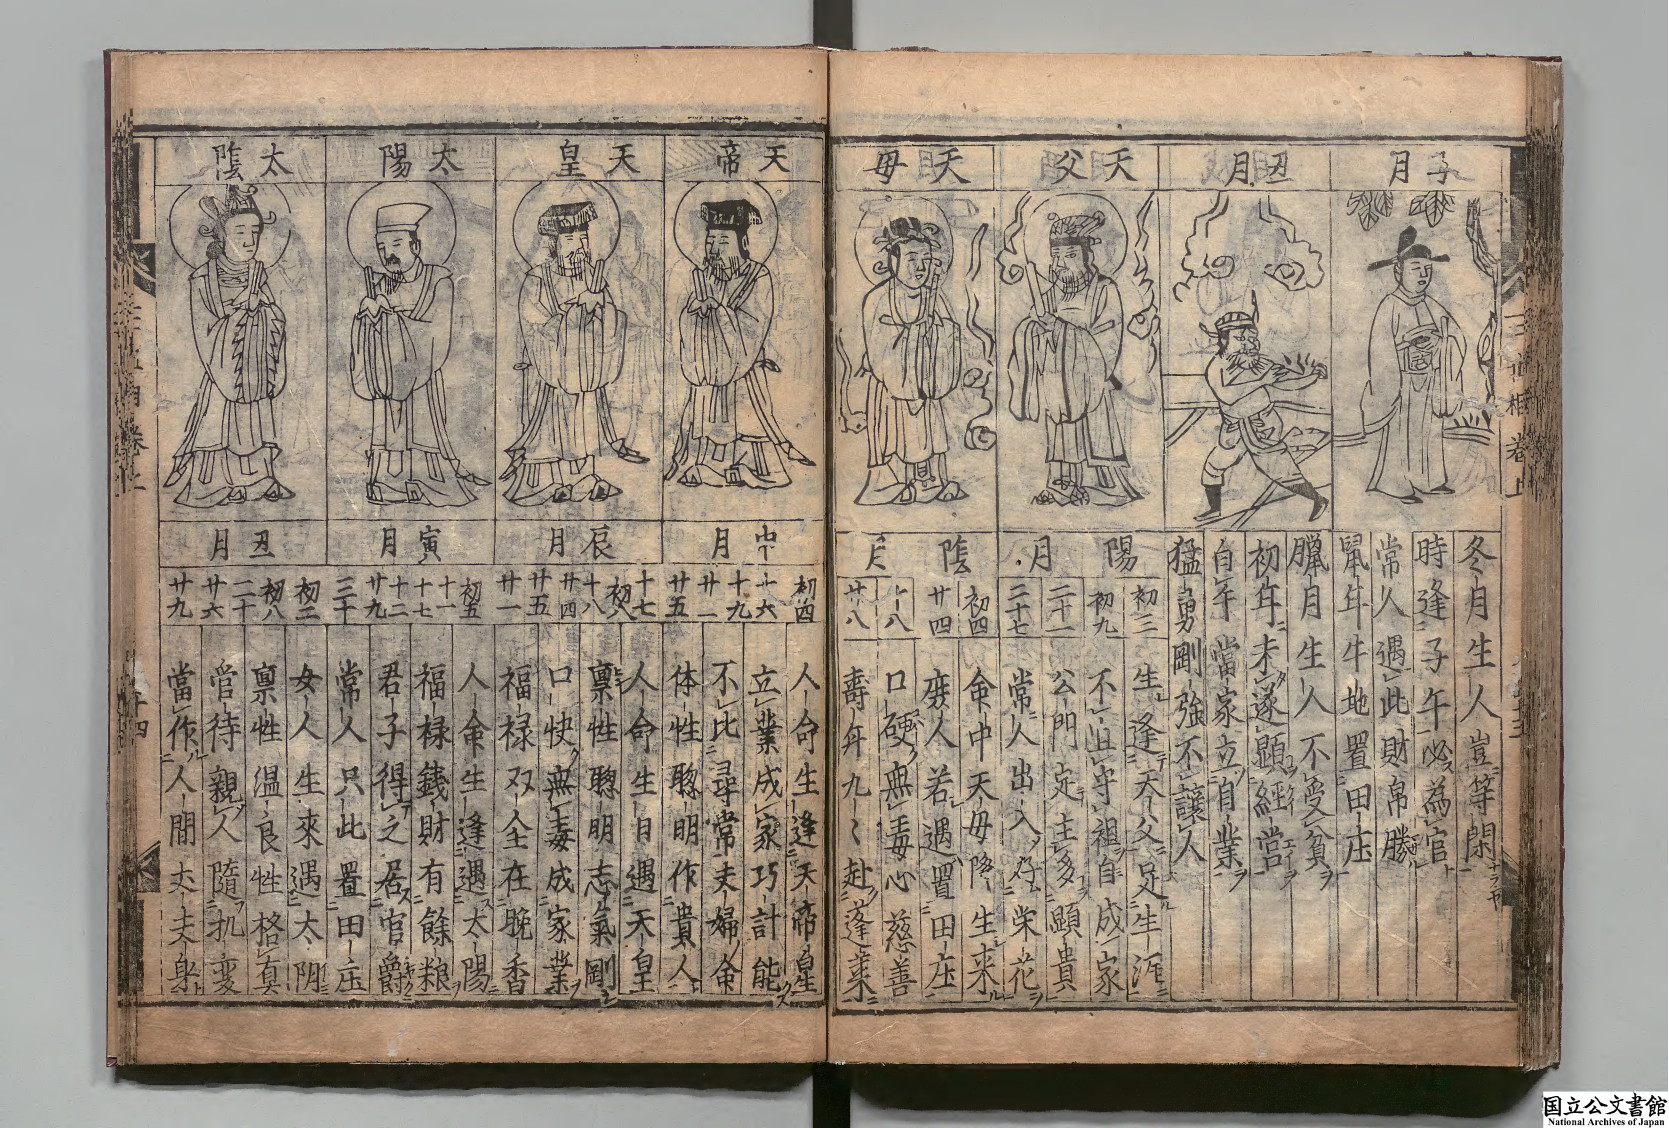 子月
冬月生人豈等閑
時逢子午必為官
常人遇此財帛勝
鼠年牛地置田庄
丑月
臘月生人不受貧
初年未遂顯經営
自年當家立自業
猛勇剛強不讓人
天父
陽月
初三
初九
二十一
二十七
生逢天父足生涯
不一守祖自成家
公門定主多顯貴
常人出入好柴花
天母
陰月
初四
廿四
十八
廿八
命中天母降生来
庶人若遇置田庄
口硬無毒心慈善
壽年九〻赴蓬萊
天帝
月
初四
十六
十九
廿一
廿五
人命生逢天帝星
立業成家巧計能
不比尋常夫婦命
体性聦明作貴人
天皇
辰月
十七
初八
十八
廿四
廿五
廿一
人命生日遇天皇
禀性聦明志氣剛
口快無毒成家業
福禄双全在晚香
太陽
寅月
初五
十一
十七
十二
廿九
三十
人命生逢遇太陽
福禄錢財有餘粮
君子得之居官爵
常人只此置田庄
太陰
丑月
初二
初八
二十
廿六
廿九
女人生來遇太阴
禀性温良性格真
管待親人隨机変
當作人間丈夫身
三世相卷上
国立公文書館
National Archives of Japan